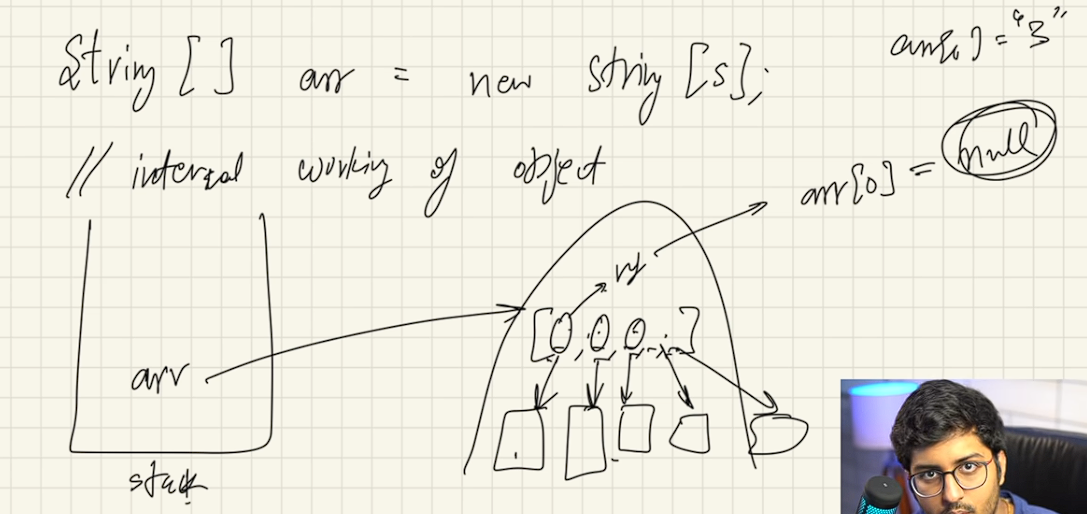 String [ ] arr = new string [5];
arr[0] = "3"
// internal working of object
arr[0] = null
ref
[ 0 , 0 , 0 , , ]
arr
stack